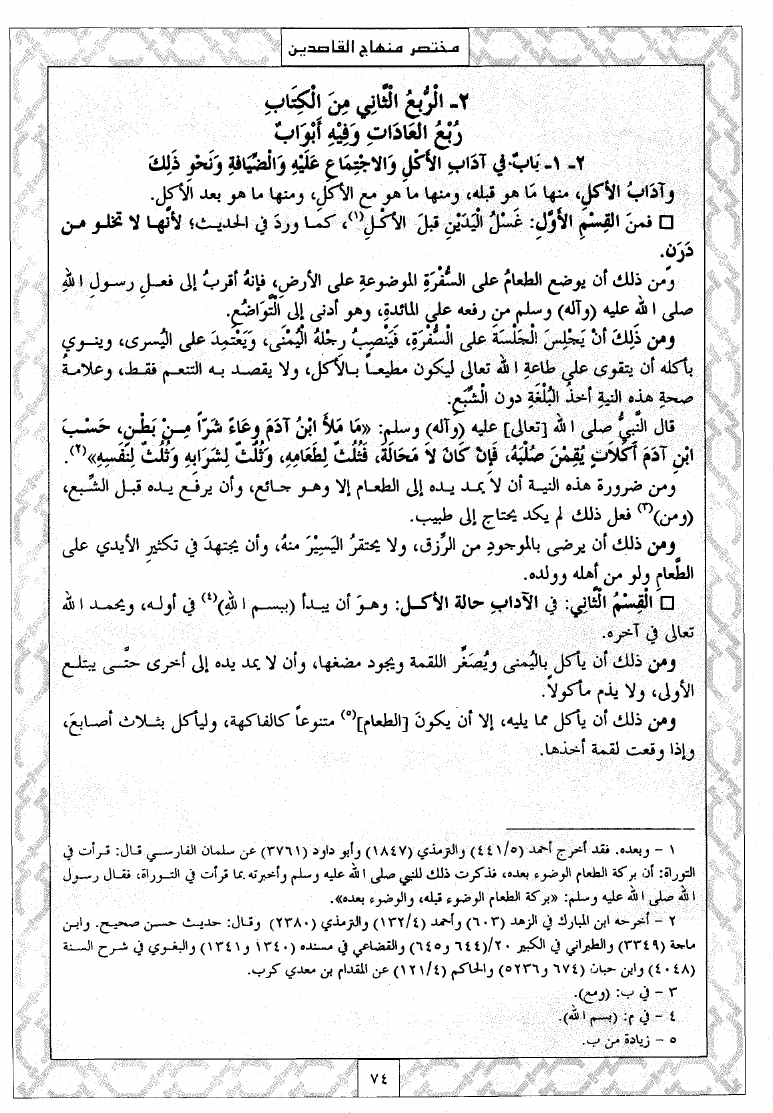 مختصر منهاج القاصدين
٢- الْرُّبعُ الْثَّانِي مِنَ الْكِتَابِ
رُبْعُ العَادَاتِ وَفِيْهِ أَبْوَابٌ
٢- ١- بَابٌ في آدَابِ الأَكْلِ وَالاجْتِمَاعِ عَلَيْهِ وَالْضِّيَافَةِ وَنَحْوِ ذَلِكَ
وآدَابُ الأكْلِ، منها مَا هو قبله، ومنها ما هو مع الأكل، ومنها ما هو بعد الأكل.
□ فمنَ القِسْمِ الأوَّلِ: غَسْلُ الْيَدَيْنِ قبلَ الأكْلِ(١)، كما وردَ في الحديث؛ لأنَّها لا تخلو من
دَرَنٍ.
ومن ذلك أن يوضع الطعامُ على السُّفْرَةِ الموضوعةِ على الأرضِ، فإنهُ أقربُ إلى فعلِ رسولِ اللهِ
صلى الله عليه (وآله) وسلم من رفعه على المائدةِ، وهو أدنى إلى الْتَّوَاضُعِ.
ومن ذَلِكَ أنْ يَجْلِسَ الْجَلْسَةَ على الْسُّفْرَةِ، فَيَنْصِبُ رِجْلهُ الْيُمْنَى، وَيَعْتَمِدَ على الْيُسرى، وينوي
بأكله أن يتقوى على طاعةِ الله تعالى ليكون مطيعاً بالأكل، ولا يقصد به التنعم فقط، وعلامةُ
صحةِ هذه النية أخذُ البُلغَةِ دون الْشِّبَعِ.
قال النَّبيُّ صلى الله [تعالى] عليه (وآله) وسلم: «مَا مَلأَ ابْنُ آدَمَ وِعَاءً شَرّاً مِنْ بَطْنٍ، حَسْبَ
ابْنِ آدَمَ أَكُلاَتٍ يُقِمْنَ صُلْبَهُ، فَإِنْ كَانَ لاَ مَحَالَةَ، فَثُلُثٌ لِطَعَامِهِ، وَثُلُثٌ لِشَرَابِهِ وَثُلُثٌ لِنَفَسِهِ»(٢).
ومن ضرورة هذه النية أن لا يمد يده إلى الطعام إلا وهو جائع، وأن يرفع يده قبل الشِّبع،
(ومن)(٣) فعل ذلك لم يكد يحتاج إلى طبيب.
ومن ذلك أن يرضى بالموجودِ من الرِّزق، ولا يحتقرُ اليَسِيْرَ منهُ، وأن يجتهدَ في تكثيرِ الأيدي على
الطَّعامِ ولو من أهله وولده.
□ الْقِسْمُ الْثَّاني: في الآدابِ حالة الأكلِ: وهوَ أن يبدأ (ببسم اللهِ)(٤) في أوله، ويحمد الله
تعالى في آخره.
ومن ذلك أن يأكل باليُمنى ويُصَغِّرُ اللقمة ويجود مضغها، وأن لا يمد يده إلى أخرى حتَّى يبتلع
الأولى، ولا يذم مأكولاً.
ومن ذلك أن يأكل مما يليه، إلا أن يكونَ [الطعام](٥) متنوعاً كالفاكهة، وليأكل بثلاث أصابعَ،
وإذا وقعت لقمة أخذها.
١ - وبعده. فقد أخرج أحمد (٤٤١/٥) والترمذي (١٨٤٧) وأبو داود (٣٧٦١) عن سلمان الفارسي قال: قرأت في
التوراة: أن بركة الطعام الوضوء بعده، فذكرت ذلك للنبي صلى الله عليه وسلم وأخبرته بما قرأت في التوراة، فقال رسول
الله صلى الله عليه وسلم: «بركة الطعام الوضوء قبله، والوضوء بعده».
٢ - أخرجه ابن المبارك في الزهد (٦٠٣) وأحمد (١٣٢/٤) والترمذي (٢٣٨٠) وقال: حديث حسن صحيح. وابن
ماجة (٣٣٤٩) والطبراني في الكبير ٢٠/(٦٤٤ و٦٤٥) والقضاعي في مسنده (١٣٤٠ و١٣٤١) والبغوي في شرح السنة
(٤٠٤٨) وابن حبان (٦٧٤ و٥٢٣٦) والحاكم (١٢١/٤) عن المقدام بن معدي كرب.
٣ - في ب: (ومع).
٤ - في م: (بسم الله).
٥ - زيادة من ب.
٧٤